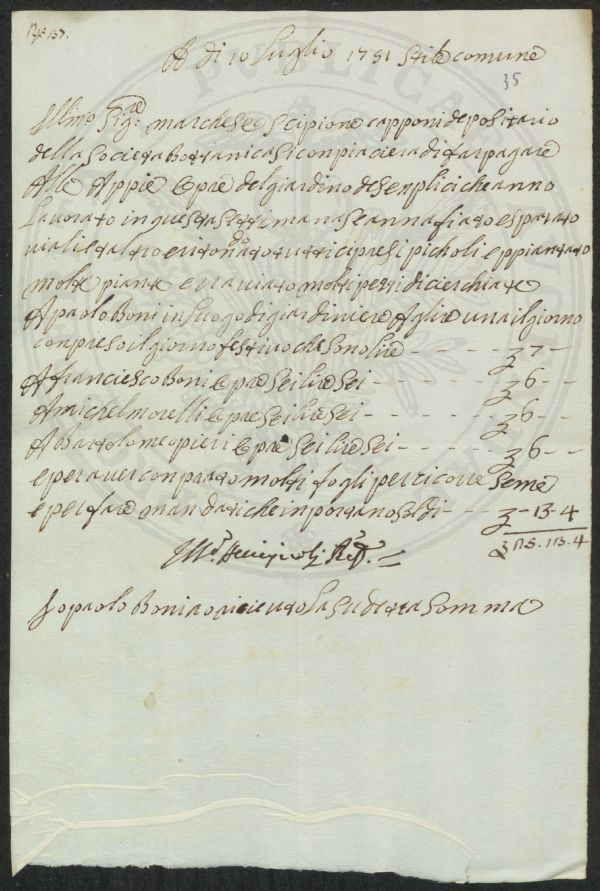 N.º 137.
A di 10 Luglio 1751 Stile comune
35
Illmo Sig:re marchese Scipione capponi depositario
della Societa Bottanica si conpiaciera di far pagare
Alle Appie Opre del giardino de Senplici che anno
Lavorato in questa Settimana Seannafiato e sparato
viali e altro e ritondato tutti cipresi picholi e ppiantato
molte piante e raviato molti pezzi di cierchiate
A paolo Boni in luogo di giardiniere A lire una il giorno
conpreso il giorno festivo che sono lire - - - - - 7 - -
A franciesco Boni Opre Sei lire Sei - - - - - 6 - -
A michel morelli Opre Sei lire Sei - - - - - 6 - -
A Bartolomeo pieri Opre Sei lire Sei - - - - - 6 - -
e per aver conprato molti fogli per ricorre Seme
e per fare mandati che inportano Soldi - - - - 13 - 4
25. 13. 4
Io paolo Boni o ricieuto La Sudetta Somma